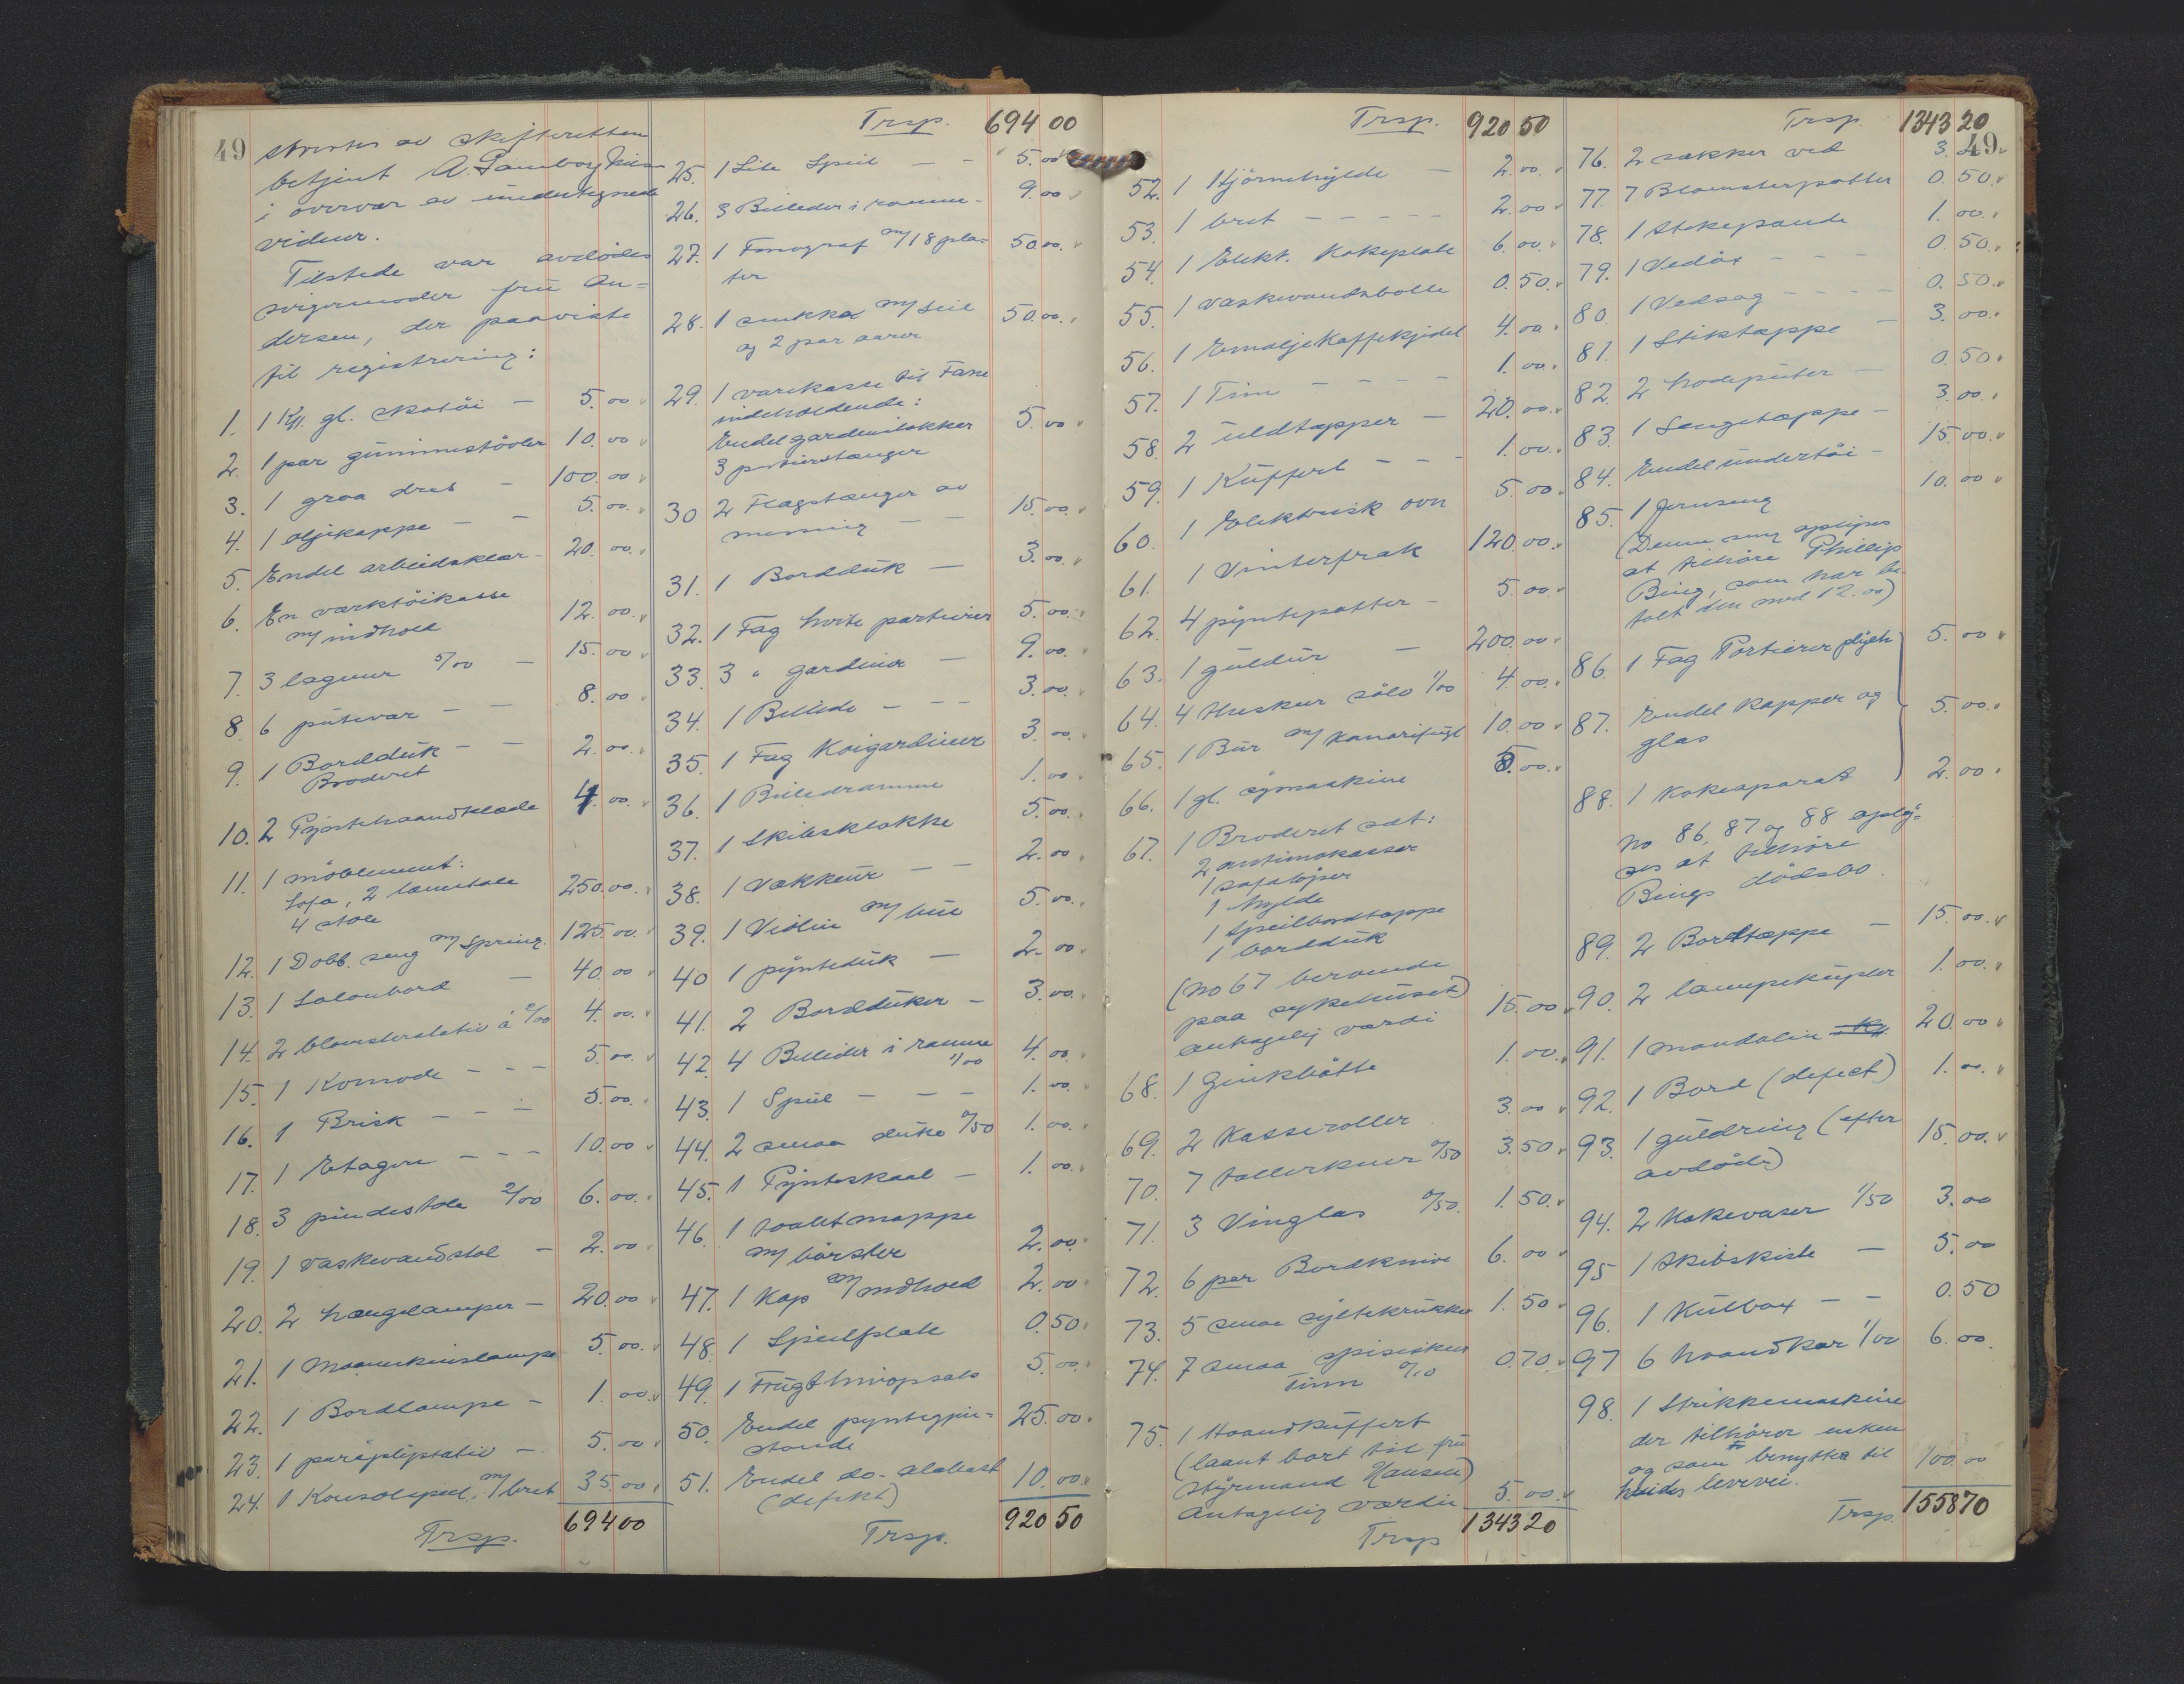 49
styrtes av skifteretten
betjent A. 
i overvær av undertegnede
vidner.
Tilstede var avdødes
svigermoder fru An=
dersen, der paaviste
til registrering:
1. 1 Kff. gl. skotöi — 5.00
2. 1 par gummistövler 10.00
3. 1 graa dres — 100.00
4. 1 oljekappe — — 5.00
5. Endel arbeidsklær — 20.00
6. En værktöikasse
m/ indhold 12.00
7. 3 lagner 5/00 — 15.00
8. 6 putevar — — 8.00
9. 1 Borddük — — 2.00
Broderet
10. 2 Pyntehaandklæde 4.00
11. 1 möblement:
Sofa, 2 lænestole
4 stole 250.00
12. 1 Dobb. seng m/ spring. 125.00
13. 1 Salonbord — 40.00
14. 2 blomsterstativ á 2/00 4.00
15. 1 Komode — — — 5.00
16. 1 Brisk — — — 5.00
17. 1 Etagere — — — 10.00
18. 3 pindestole 2/00 6.00
19. 1 vaskevandstol — 2.00
20. 2 hængelamper — 20.00
21. 1 Maaneskinslampe 5.00
22. 1 Bordlampe — 1.00
23. 1 paraplystativ — 5.00
24. 1 Konsolspeil m/ bret 35.00
Trsp. 694 00
Trsp. 694 00
25. 1 Lite Speil — — 5.00
26. 3 Billeder i ramme — 9.00
27. 1 Fonograf m/ 18 pla= 50.00
ter
28. 1 snekke m/ seil 50.00
og 2 par aarer
29. 1 varekasse til Fane
indeholdende:
Endel gardinstokker 5.00
3 portierstænger
30 2 Flagstænger av
messing — — 15.00
31. 1 Borddük — 3.00
32. 1 Fag hvite portierer 5.00
33. 3 " gardiner — 9.00
34. 1 Billede — — — 3.00
35. 1 Fag Koigardiner 3.00
36. 1 Billedramme 1.00
37. 1 Skibsklokke 5.00
38. 1 Vækkeur — — 2.00
39. 1 Violin m/ bue 5.00
40 1 pyntedük — 2.00
41. 2 Bordduker — 3.00
42. 4 Billeder i ramme
1/00 4.00
43. 1 Speil — — — 1.00
44. 2 smaa duke 0/50 1.00
45. 1 Pynteskaal — 1.00
46. 1 toaletmappe
m/ börster 2.00
47. 1 Kop m/ indhold 2.00
48. 1 Speilplate 0.50
49. 1 Frugtknivopsats 5.00
50. Endel pyntegjen= 25.00
stande
51. Endel do - alabast 10.00
(defekt)
Trsp. 920 50
Trsp. 920 50
52. 1 Hjörnehylde — 2.00
53. 1 bret — — — — — 2.00
54. 1 Elekt. Kokeplate 6.00
55. 1 vaskevandsbolle 0.50
56. 1 Emaljekaffekjedel 4.00
57. 1 Tine — — — — 1.00
58. 2 uldtæpper — 20.00
59. 1 Kuffert — — — 1.00
60. 1 Elektrisk ovn 5.00
61. 1 Vinterfrak 120.00
62. 4 pyntepotter — 5.00
63. 1 guldur — 200.00
64. 4 theskeer sölv 1/00 4.00
65. 1 Bur m/ kanarifugl 10.00
66. 1 gl. symaskine 5.00
67. 1 Broderet sæt:
2 antimokasser
1 sofalöper
1 hylde
1 speilbordtæppe
1 borddük
(no 67 beroende
paa sykehuset)
antagelig værdi 15.00
68. 1 Zinkbötte 1.00
69. 2 Kasseroller 3.00
70. 7 tallerkener 0/50 3.50
71. 3 Vinglas 0/50. 1.50
72. 6 par Bordknive 6.00
73. 5 smaa syltekrukker 1.50
74. 7 smaa spiseskeer
Tinn 0/10 0.70
75. 1 Haandkuffert
(laant bort til fru
styrmand Hansen)
Antagelig værdi 5.00
Trsp 1343 20
Trsp. 1343 20
49
76. 2 sækker ved 3.
77. 7 Blomsterpotter 0.50
78. 1 stekepande 1.00
79. 1 Vedöx — — — 0.50
80. 1 Vedsag — — — — 0.50
81. 1 Stiktæppe — 3.00
82. 2 hodeputer — 0.50
83. 1 Sengetæppe — 3.00
84. Endel undertöi — 15.00
85. 1 Jernseng 10.00
(Denne seng oplyses
at tilhöre Phillip
Bing, som har be
talt den med 12.00)
86. 1 Fag Portierer plysch 5.00
87. Endel kopper og 5.00
glas
88. 1 Kokeaparat 2.00
No 86, 87 og 88 oply=
ses at tilhöre
Bings dödsbo.
89. 2 Bordtæppe — 15.00
90. 2 lampekupler 1.00
91. 1 mandolin 20.00
92. 1 Bord (defect) 1.00
93. 1 guldring (efter 15.00
avdöde)
94. 2 Kakevaser 1/50 3.00
95 1 skibskiste — 5.00
96. 1 Kulbox — — 0.50
97 6 haandkær 1/00 6.00
98. 1 Strikkemaskine
der tilhörer enken
og som benyttes til
hendes levevei. 100.00
Trsp. 1558 70